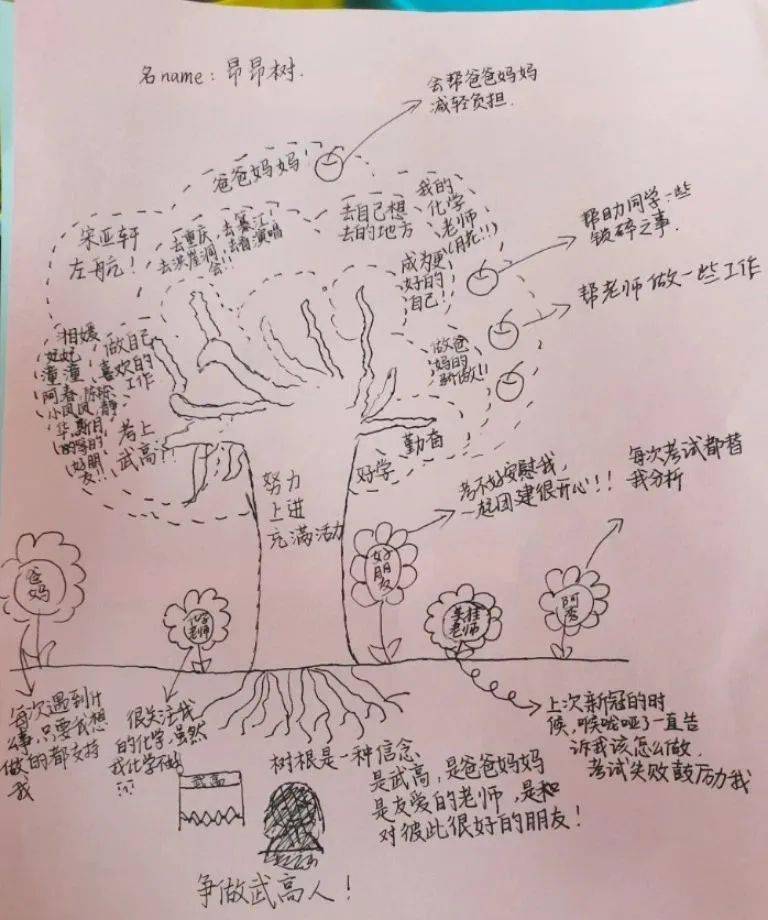 名name：昂昂树.
会帮爸爸妈妈
减轻负担.
爸爸妈妈
宋亚轩
左航！
去重庆
去洪崖洞
去綦江
去看演唱
会!!
去自己想
去的地方
我的
化学
老师
成为更
好的
自己！
帮助同学一些
锁碎之事.
帮老师做一些工作
做爸
妈的
骄傲!!
做自己
喜欢的
工作
考上
武高!!
相媛
妃妃
潼潼
阿春
小凤凤
好朋
友!!
努力
上进
充满活力
好学
勤奋
考不好安慰我,
一起团建很开心!!
每次考试都替
我分析
爸
妈
化学
老师
好
朋
友
老师
阿秀
每次遇到什
么事,只要我想
做的都支持
我
很关注我
的化学,虽然
我化学不好
树根是一种信念
是武高,是爸爸妈妈
是友爱的老师,是和
对彼此很好的朋友！
武高
上次新冠的时
候,喉咙哑了一直告
诉我该怎么做.
考试失败鼓励我
争做武高人！